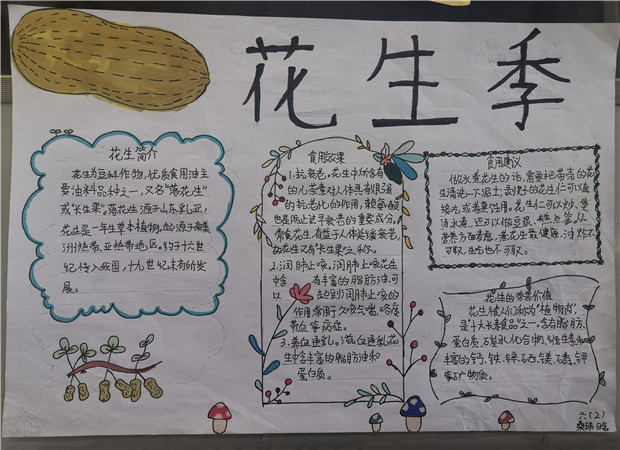 花生季
花生简介
花生为豆科作物,优质食用油主
要油料品种之一,又名"落花生"
或"长生果"。落花生源于山东乳业,
花生是一年生草本植物,起源于南美
洲热带、亚热带地区。约于十六世
纪传入我国,十九世纪末有所发
展。
食用效果
1.抗衰老,花生中所含有
的儿茶素对人体具有很强
的抗老化的作用,赖氨酸
也是防止过早衰老的重要成分。
常食花生,有益于人体延缓衰老,
故花生又有"长生果"之称。
2.润肺止咳。润肺止咳花生
中含有丰富的脂肪油,可
以起到润肺止咳的
作用常用于久咳气喘,咯痰
带血等病症。
3.养血通乳。滋血通乳花
生中含丰富的脂肪油和
蛋白质。
食用建议
做水煮花生的话,需要把带壳的花
生清洗一下泥土;剥好的花生仁可以直
接吃或者煮食用。花生仁可以炒、
汤水煮,还可以做豆浆,
营养方面考虑,煮花生最健康,油炸不
可取,生吃也不可取。
花生的营养价值
花生被人们称为"植物肉",
是"十大长寿食品"之一。含有脂肪、
蛋白质、碳水化合物、维生素和
丰富的钙、铁、锌、硒、镁、磷、钾
等矿物质。
六(2)